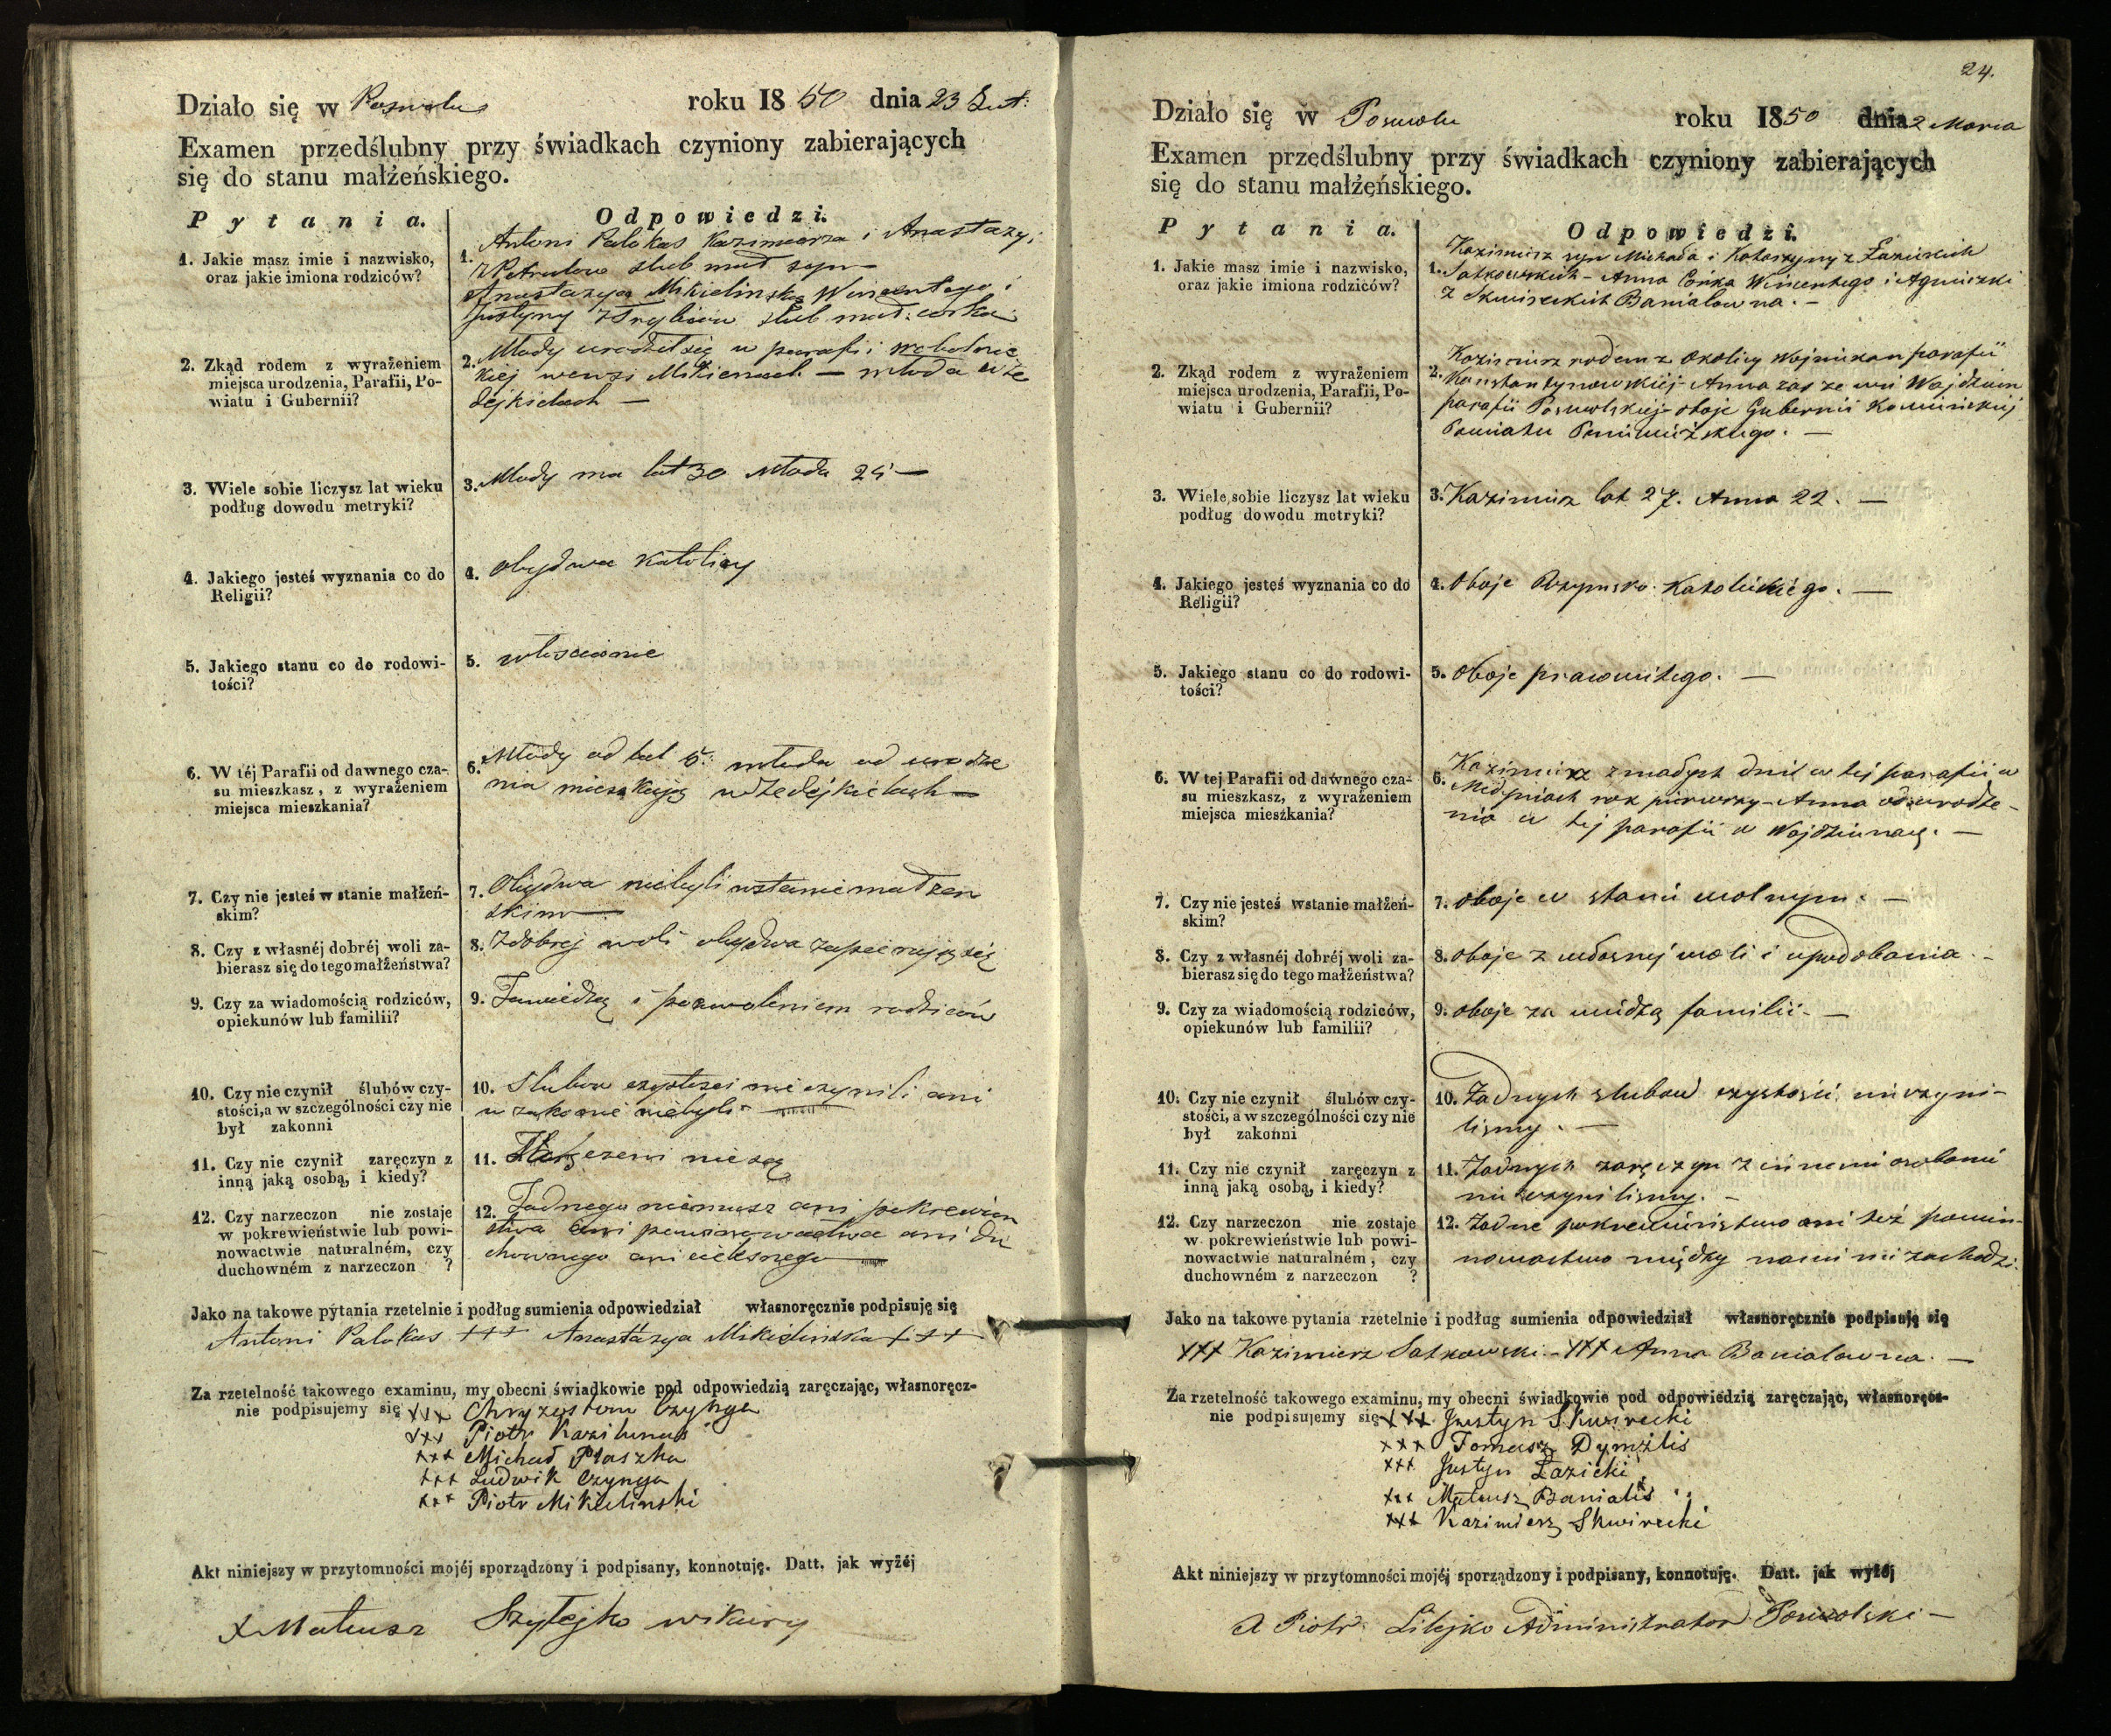 Działo się w Poswolu roku 1850 dnia 23 Lut:
Examen przedślubny przy świadkach czyniony zabierających
się do stanu małżeńskiego.
Pytania.
Odpowiedzi.
1. Jakie masz imie i nazwisko,
oraz jakie imiona rodziców?
1. Antoni Palokas Kazimierza i Anastazyi
ślub mał syn
Anastazya Mikielinska Wincentego i
Justyny ślub mał: corka
2. Zkąd rodem z wyrażeniem
miejsca urodzenia, Parafii, Po-
wiatu i Gubernii?
2. Młody urodzeł się w parafii wobolnic
kiej wewsi Mikienach — młoda w Ze
dejkielach —
3. Wiele sobie liczysz lat wieku
podług dowodu metryki?
3. Młody ma lat 30 Młoda 25 —
4. Jakiego jesteś wyznania co do
Religii?
4. obydwa Katolicy
5. Jakiego stanu co do rodowi-
tości?
5. włoscianie
6. W téj Parafii od dawnego cza-
su mieszkasz, z wyrażeniem
miejsca mieszkania?
6. Młody od lat 5. młoda od urodze
nia mieszkają wZedejkielach —
7. Czy nie jesteś w stanie małżeń-
skim?
7. Obydwa niebyli wstanie małżen
skim —
8. Czy z własnéj dobréj woli za-
bierasz się do tego małżeństwa?
8. Zdobrej woli obydwa
9. Czy za wiadomością rodziców,
opiekunów lub familii?
9. Zawiedzą i pozwoleniem rodziców
10. Czy nie czynił ślubów czy-
stości, a w szczególności czy nie
był zakonni
10. Slubow czystosci nie czynili ani
w zakonie niebyli —
11. Czy nie czynił zaręczyn z
inną jaką osobą, i kiedy?
11. nie są
12. Czy narzeczon nie zostaje
w pokrewieństwie lub powi-
nowactwie naturalném, czy
duchowném z narzeczon ?
12. Żadnego niemasz ani pokrewien
stwa ani powinowactwa ani du
chownego ani cielesnego —
Jako na takowe pytania rzetelnie i podług sumienia odpowiedział własnoręcznie podpisuję się
Antoni Palokas +++ Anastazya Mikielinska +++
Za rzetelność takowego examinu, my obecni świadkowie pod odpowiedzią zaręczając, własnoręcz-
nie podpisujemy się xxx Chryzostom Czynga
xxx Piotr Kazilunas
xxx Michał Płaszka
xxx Ludwik Czynga
xxx Piotr Mikielinski
Akt niniejszy w przytomności mojéj sporządzony i podpisany, konnotuję. Datt. jak wyżéj
X Mateusz Szylejko wikary
24.
Działo się w Poswolu roku 1850 dnia 2 Marca
Examen przedślubny przy świadkach czyniony zabierających
się do stanu małżeńskiego.
Pytania.
Odpowiedzi.
1. Jakie masz imie i nazwisko,
oraz jakie imiona rodziców?
1. Kazimierz syn Michała i Katarzyny z Łazickich
Satkowskich — Anna Córka Wincentego i Agnieszki
z Skwireckich Banialowna. —
2. Zkąd rodem z wyrażeniem
miejsca urodzenia, Parafii, Po-
wiatu i Gubernii?
2. Kazimierz rodem z Okolicy Wojniszan parafii
Konstantynowskiej — Anna zaś ze wsi Wajdziun
parafii Poswolskiej — oboje Gubernii Kowieńskiej
Powiatu Poniewieżskiego. —
3. Wiele sobie liczysz lat wieku
podług dowodu metryki?
3. Kazimierz lat 27. Anna 22. —
4. Jakiego jesteś wyznania co do
Religii?
4. Oboje Rzymsko Katolickiego. —
5. Jakiego stanu co do rodowi-
tości?
5. Oboje prawowitego. —
6. W tej Parafii od dawnego cza-
su mieszkasz, z wyrażeniem
miejsca mieszkania?
6. Kazimierz z małych dni w tej parafii w
rok pierwszy — Anna od urodze-
nia w tej parafii w Wajdziunach. —
7. Czy nie jesteś wstanie małżeń-
skim?
7. oboje w stanie wolnym. —
8. Czy z własnéj dobréj woli za-
bierasz się do tego małżeństwa?
8. oboje z własnej woli i upodobania. —
9. Czy za wiadomością rodziców,
opiekunów lub familii?
9. oboje za wiedzą familii. —
10. Czy nie czynił ślubów czy-
stości, a w szczególności czy nie
był zakonni
10. Żadnych slubow czystości nieczyni-
lismy. —
11. Czy nie czynił zaręczyn z
inną jaką osobą, i kiedy?
11. Żadnych zaręczyn z innemi osobami
nie czynilismy. —
12. Czy narzeczon nie zostaje
w pokrewieństwie lub powi-
nowactwie naturalném, czy
duchowném z narzeczon ?
12. Żadne pokrewieństwo ani też powin-
nowactwo między nami nie zachodzi.
Jako na takowe pytania rzetelnie i podług sumienia odpowiedział własnoręcznie podpisuję się
XXX Kazimierz Satkowski. — XXX Anna Banialowna. —
Za rzetelność takowego examinu, my obecni świadkowie pod odpowiedzią zaręczając, własnoręcz-
nie podpisujemy się xxx Justyn Skwirecki
xxx Tomasz Dymżlis
xxx Justyn Łazicki
xxx Mateusz Banialis
xxx Kazimierz Skwirecki
Akt niniejszy w przytomności mojéj sporządzony i podpisany, konnotuję. Datt. jak wyżéj
X Piotr Lilejko Administrator Poswolski —